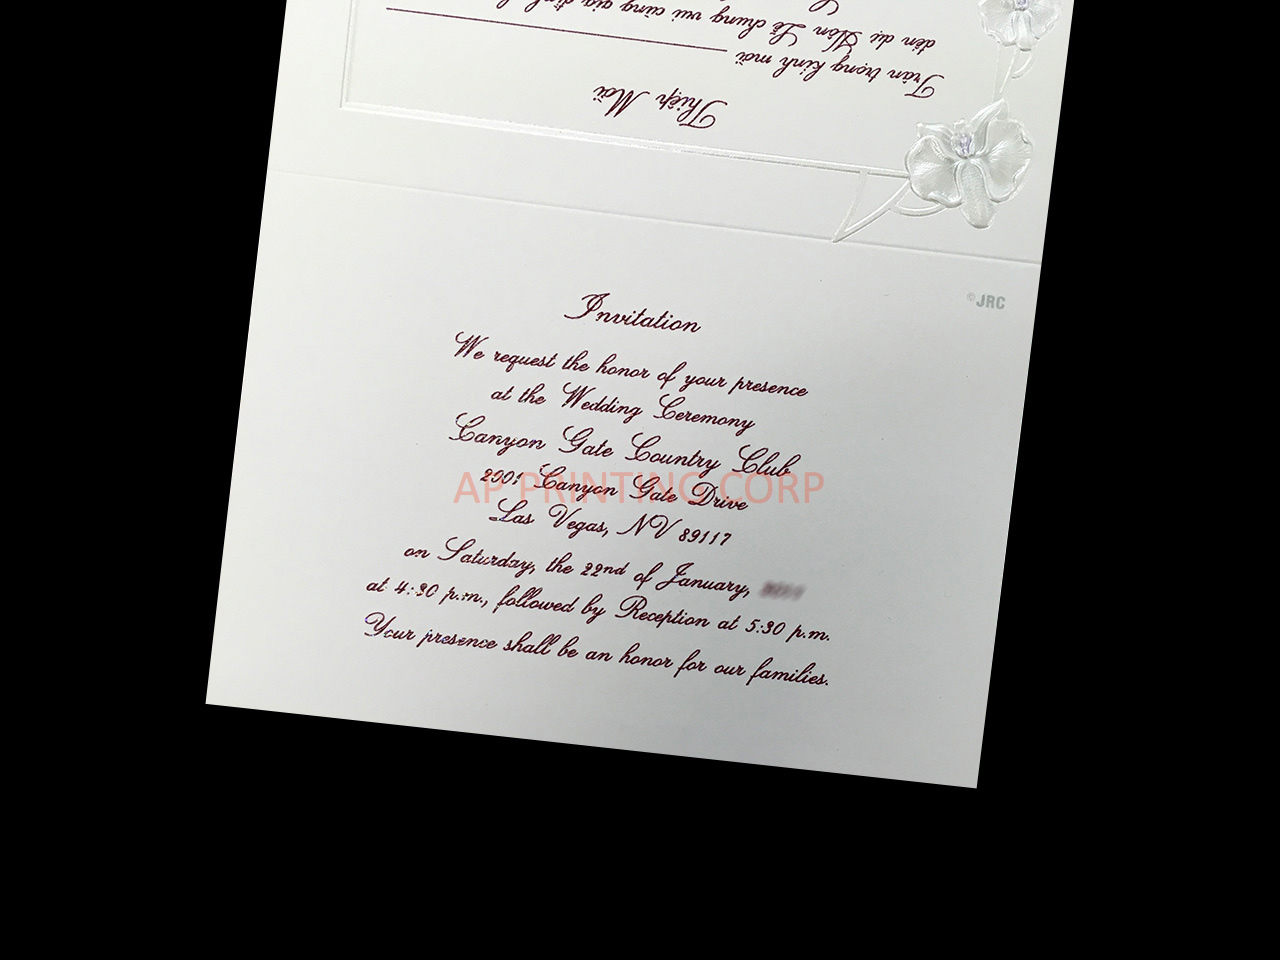 Thiệp Mời
Trân trọng kính mời
đến dự Hôn Lễ chung vui cùng gia đình
©JRC
Invitation
We request the honor of your presence
at the Wedding Ceremony
Canyon Gate Country Club
2001 Canyon Gate Drive
Las Vegas, NV 89117
on Saturday, the 22nd of January,
at 4:30 p.m., followed by Reception at 5:30 p.m.
Your presence shall be an honor for our families.
AP PRINTING CORP